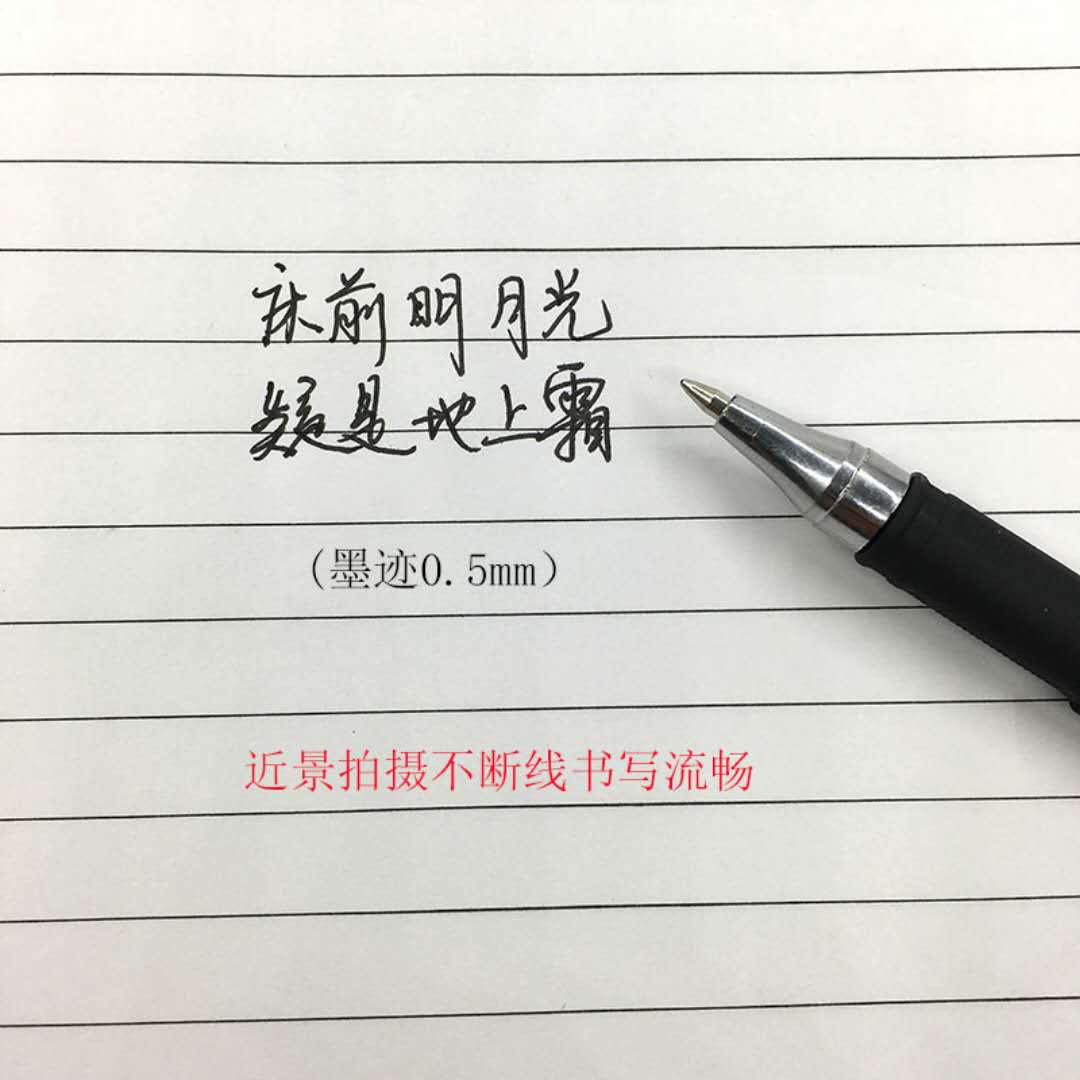 床前明月光
疑是地上霜
(墨迹0.5mm)
近景拍摄不断线书写流畅